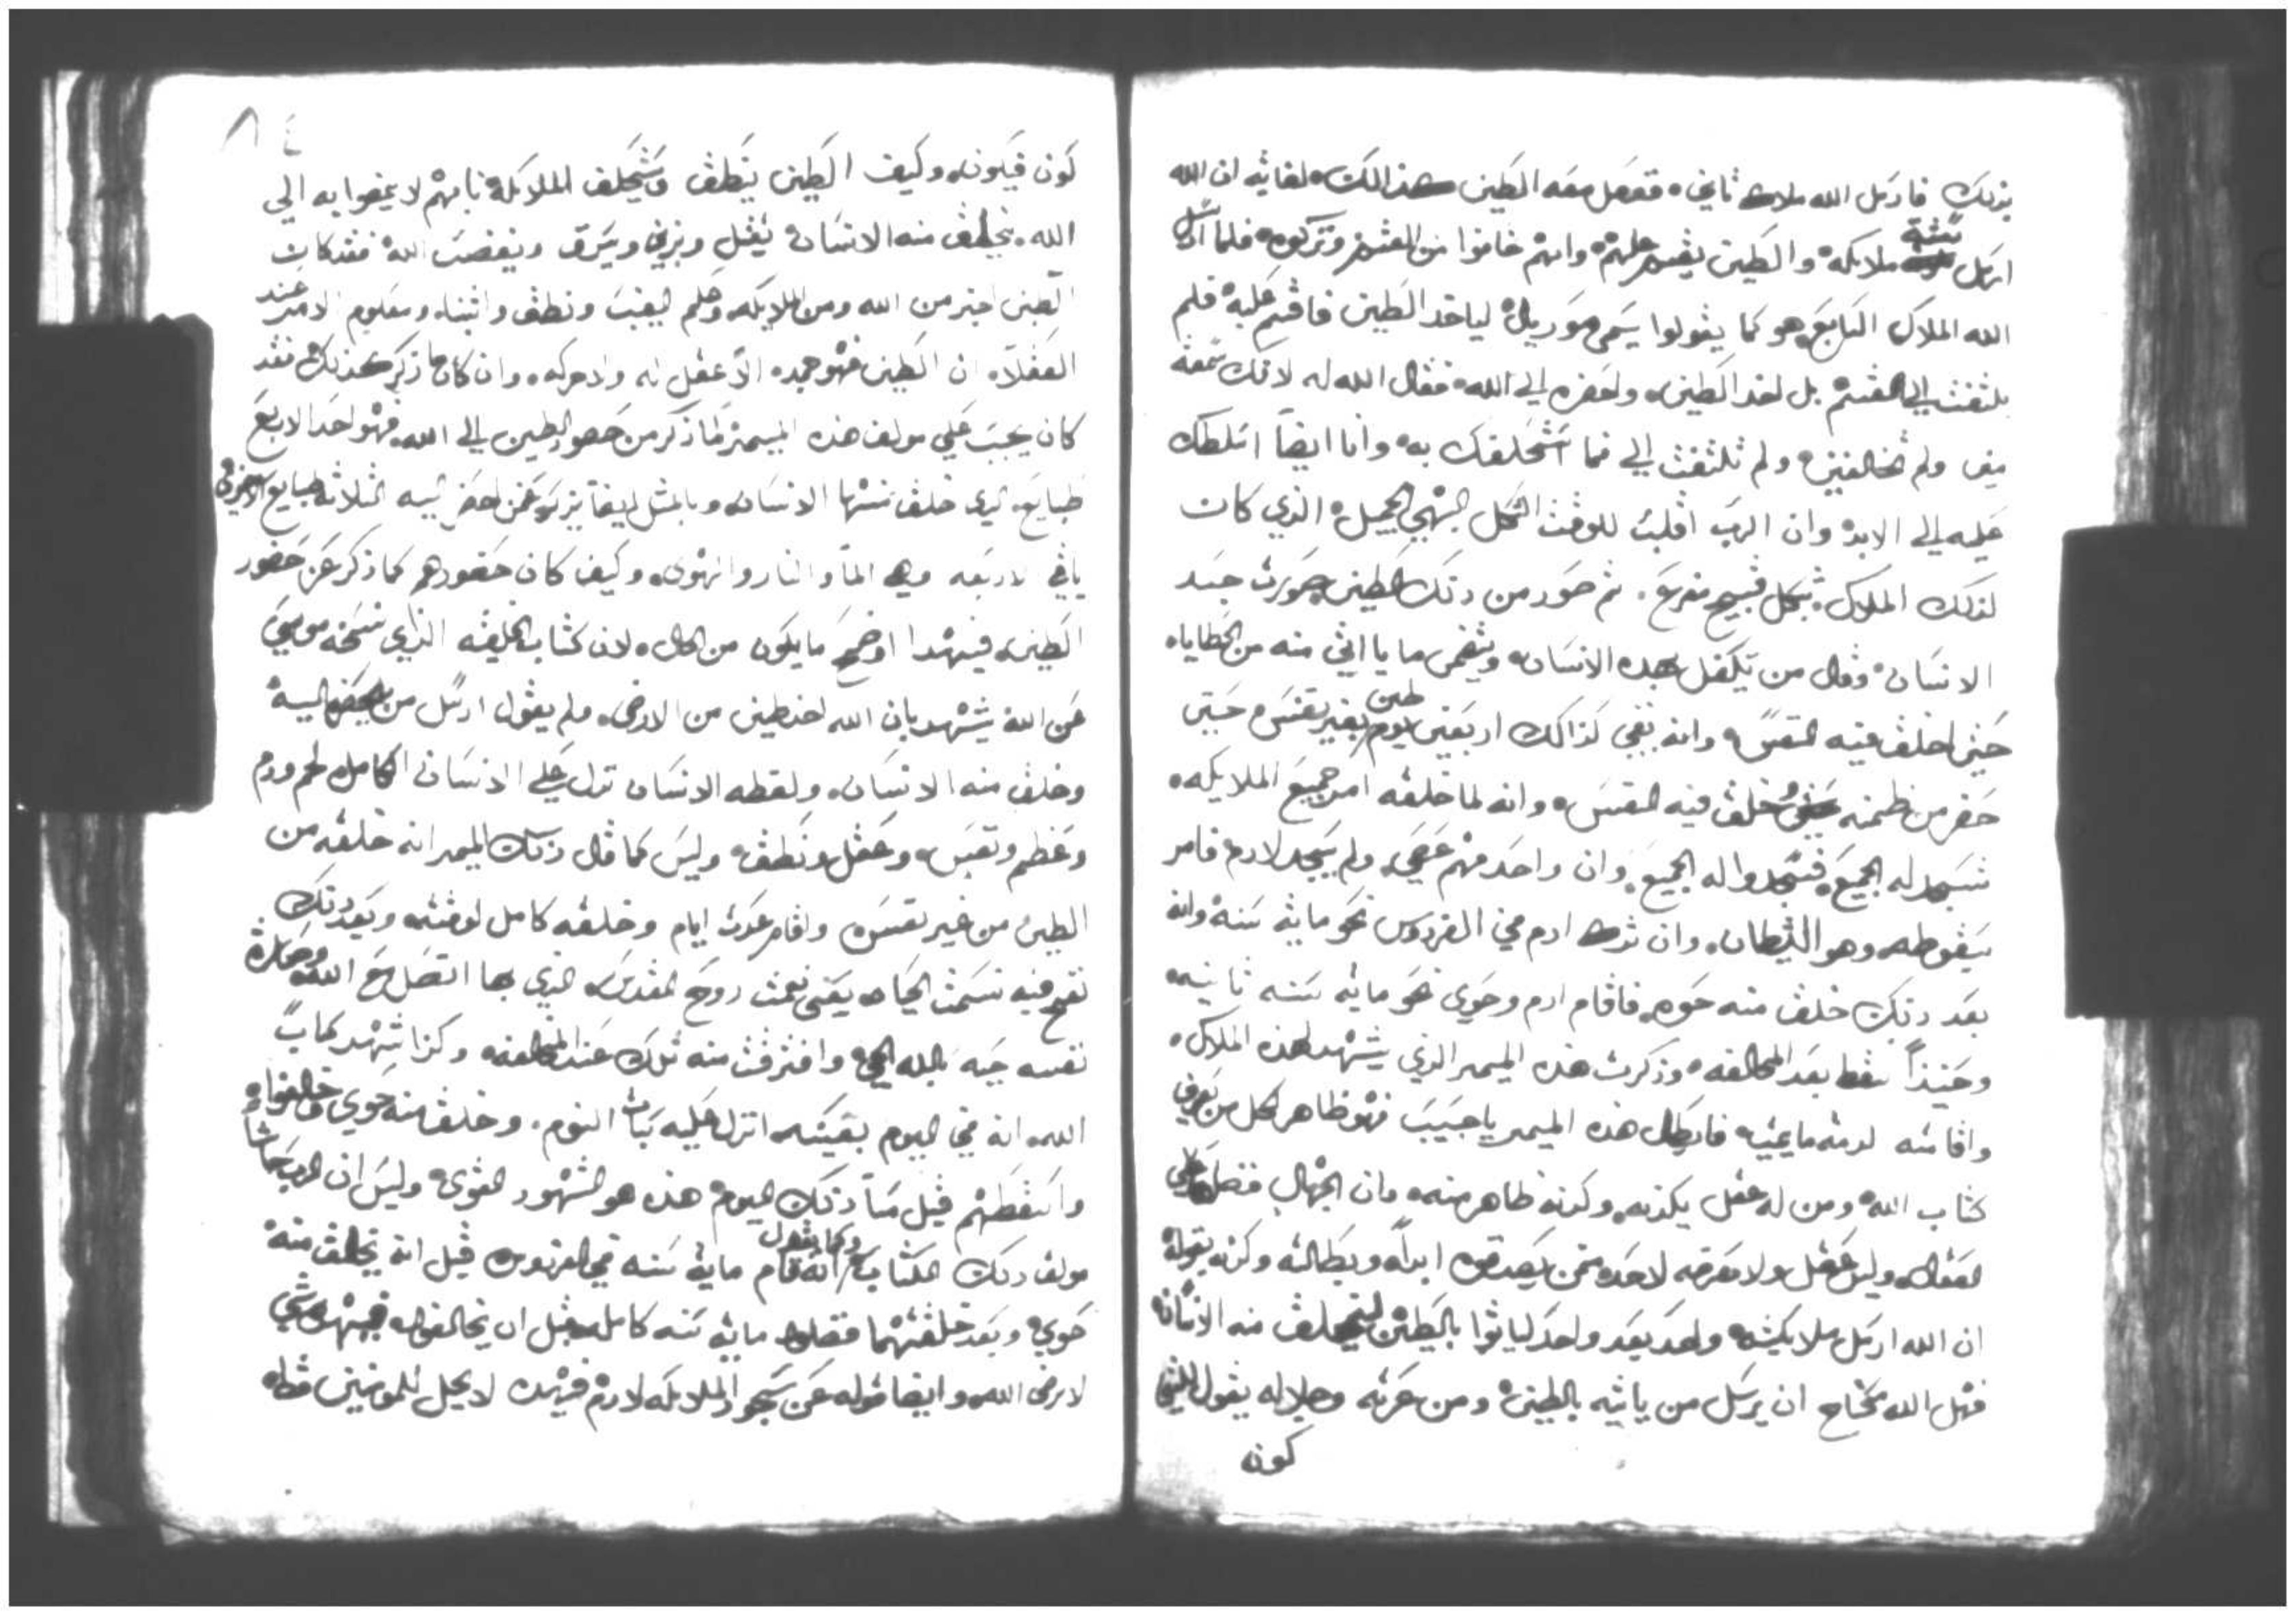 بذلك فارسل الله ملاك ثاني، ففعل معه الطين كذالك، لغاية ان الله
ارسل ستة ملايكه، والطين يقسم عليهم، وانهم خافوا من القسم وتركوه، فلما ارسل
الله الملاك السابع، هو كما يقولوا يسمى موريال، لياخد الطين فاقسم عليه، فلم
يلتفت الي القسم بل اخد الطين، واحضره الي الله، فقال الله له لانك سمعة
مني ولم تخالفني، ولم تلتفت الي فيما استحلفك به، وانا ايضاً اسلطك
عليه الي الابد، وان الرب اقلب للوقت الشكل البهي الجميل، الذي كان
لذلك الملاك، بشكل قبيح مفزع، ثم صور من ذلك الطين صورت جسد
الانسان، وقال من يتكفل بهذه الانسان، ويضمن ما ياتي منه من الخطايا،
حتي اخلق فيه النفس، وانه بقي كذالك اربعين يوم طين بغير نفس، حتي
حضر من ضمنه خلق فيه النفس، وانه لما خلقه امر جميع الملايكه،
تسجد له الجميع، فسجدوا له الجميع، وان واحد منهم عصي، ولم يسجد لادم، فامر
بسقوطه، وهو الشيطان، وان ترك ادم في الفردوس نحو ماية سنة، وانه
بعد ذلك خلق منه حوه، فاقام ادم وحوي نحو ماية سنه ثانيه،
وحينذاً سقط بعد المخالفه، وذكرت هذه الميمر الذي يشهد لهذه الملاك،
واقامته لرتبة مايتيه فابطل هذه الميمر يا حبيب فهو ظاهر لكل من يعرف
كتاب الله، ومن له عقل يكذبه، وكذبه ظاهر منه، وان الجهال فضلا علي
ان الله ارسل ملايكته، واحد بعد واحد لياتوا بالطين ليخلق منه الانسان،
فهل الله محتاج ان يرسل من ياتيه بالطين، ومن عزته وجلاله يقول للشي
كون
٨٤
كون فيكون، وكيف الطين ينطق ويستحلف الملايكة، بانهم لا يمضوا به الي
الله، يخلق منه الانسان، يقتل ويزني ويسرق ويغضب الله، فقد كان
الطين اخبر من الله ومن الملايكه، وعلم الغيب ونطق وانبا، ومعلوم الامر عند
العقلا، ان الطين فهو جمد، الا عقل له ولا حركه، وان كان ما ذكر كذلك، فقد
كان يجب علي مولف هذه الميمر لما ذكر من حضور الطين الي الله، فهو احد الاربع
طبايع، الذي خلق منها الانسان، وبالمثل ايضاً يذكر عمن احضر اليه الثلاثة طبايع الاخري
باقي الاربعه، وهي الما والنار والهوي، وكيف كان حضورهم كما ذكر عن حضور
الطين، فبهدا اوضح ما يكون من المحال، لان كتاب الخليقه الذي نسخه موسي
عن الله يشهد بان الله اخد طين من الارض، ولم يقول ارسل من يحضر اليه
وخلق منه الانسان، ولفظه الانسان تدل علي الانسان الكامل، لحم ودم
وعظم ونفس، وعقل ونطق، وليس كما قال ذلك الميمر انه خلقه من
الطين من غير نفس، واقام عدت ايام وخلقه كامل لوقته، وبعد ذلك
نفخ فيه نسمت الحياه يعني نعمت روح القدس، الذي بها اتصل مع الله، وصارة
نفسه حيه بالله الحي، وافترقت منه تلك عند المخالفه، وكذا شهد كتاب
الله، انه في اليوم بعينه، انزل عليه سبات النوم، وخلق منه حوي، وخالفوا،
واسقطهم قبل مسا ذلك اليوم، هذه هو الشهور القوي، وليس ان الرب
مولف ذلك الكتاب وكما يقول انه اقام ماية سنه في الفردوس قبل انه يخلق منه
حوي، وبعد خلقتهما فضلوا ماية سنه كامل، قبل ان يخالفوا، فبهذه شي
لا يرضي الله، وايضا قوله عن سجود الملايكه لادم، فبهذه لا يحل للمومنين